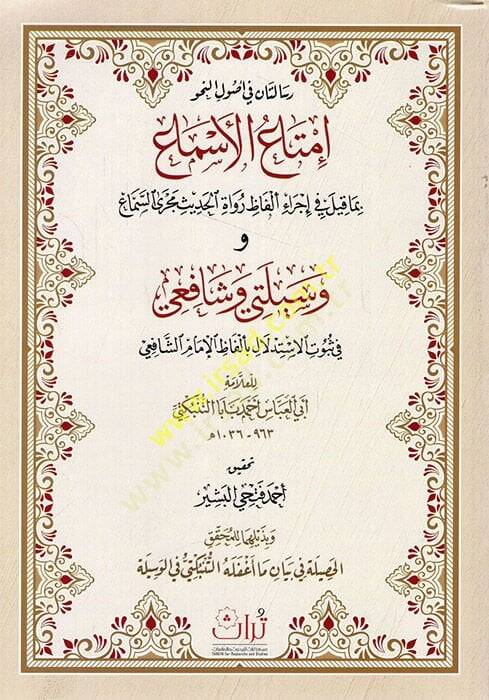 رسالتان في أصول النحو
إمتاع الأسماع
بما قيل في إجراء ألفاظ رواة الحديث مجرى السماع
و
وسيلتي وشافعي
في ثبوت الاستدلال بألفاظ الإمام الشافعي
للعلامة
أبي العباس أحمد بابا التنبكتي
٩٦٣ - ١٠٣٦هـ
تحقيق
أحمد فتحي البشير
وبذيلها للمحقق
الحصيلة في بيان ما أغفله التنبكتي في الوسيلة
تراث